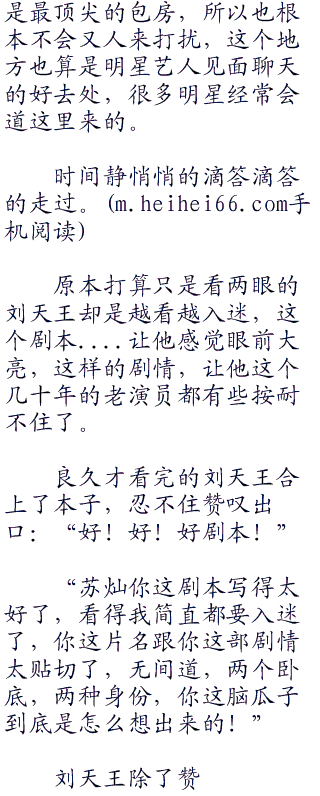 是最顶尖的包房，所以也根
本不会又人来打扰，这个地
方也算是明星艺人见面聊天
的好去处，很多明星经常会
道这里来的。
时间静悄悄的滴答滴答
的走过。(m.heihei66.com手
机阅读)
原本打算只是看两眼的
刘天王却是越看越入迷，这
个剧本....让他感觉眼前大
亮，这样的剧情，让他这个
几十年的老演员都有些按耐
不住了。
良久才看完的刘天王合
上了本子，忍不住赞叹出
口：“好！好！好剧本！”
“苏灿你这剧本写得太
好了，看得我简直都要入迷
了，你这片名跟你这部剧情
太贴切了，无间道，两个卧
底，两种身份，你这脑瓜子
到底是怎么想出来的！”
刘天王除了赞